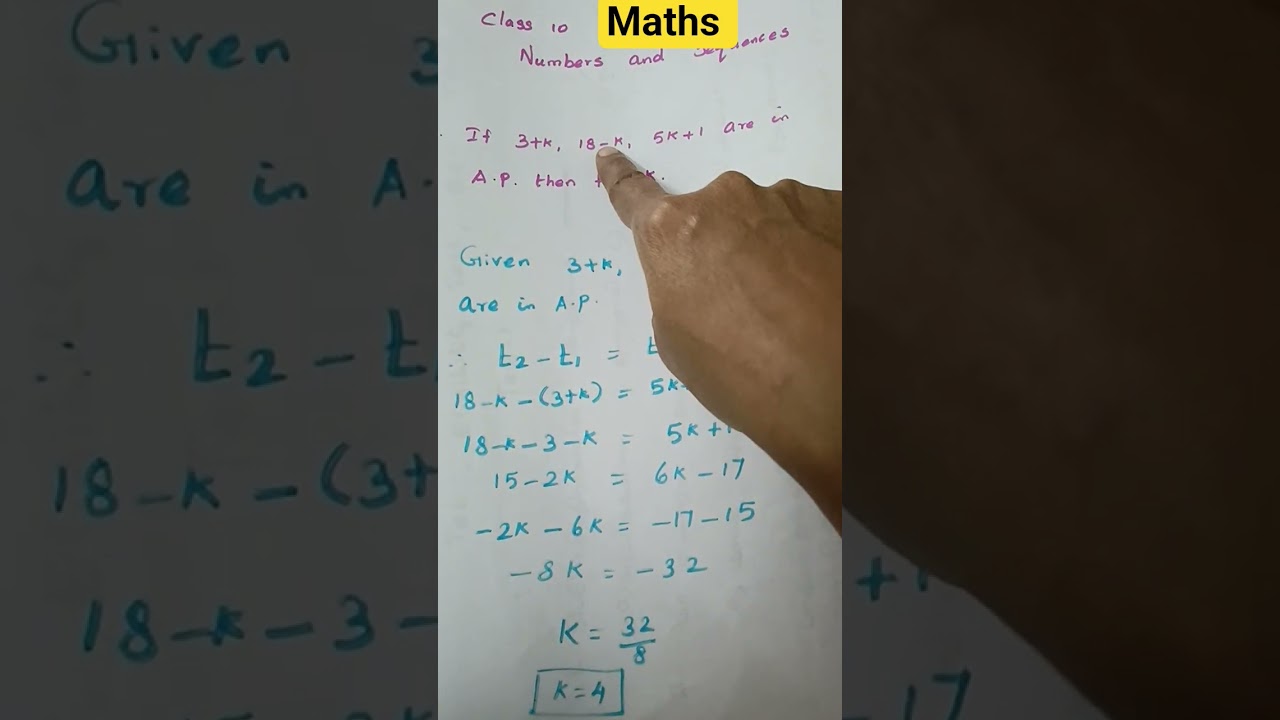 Maths
Class 10
Numbers and Sequences
If 3+k, 18-k, 5k+1 are in
A.P. then k.
Given 3+k,
are in A.P.
∴ t₂ - t₁ =
18-k-(3+k) = 5k
18-k-3-k = 5k+1
15-2k = 6k-17
-2k-6k = -17-15
-8k = -32
k = 32/8
k=4